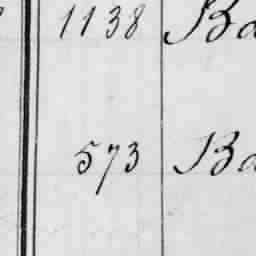 1138 Ba
573 Ba